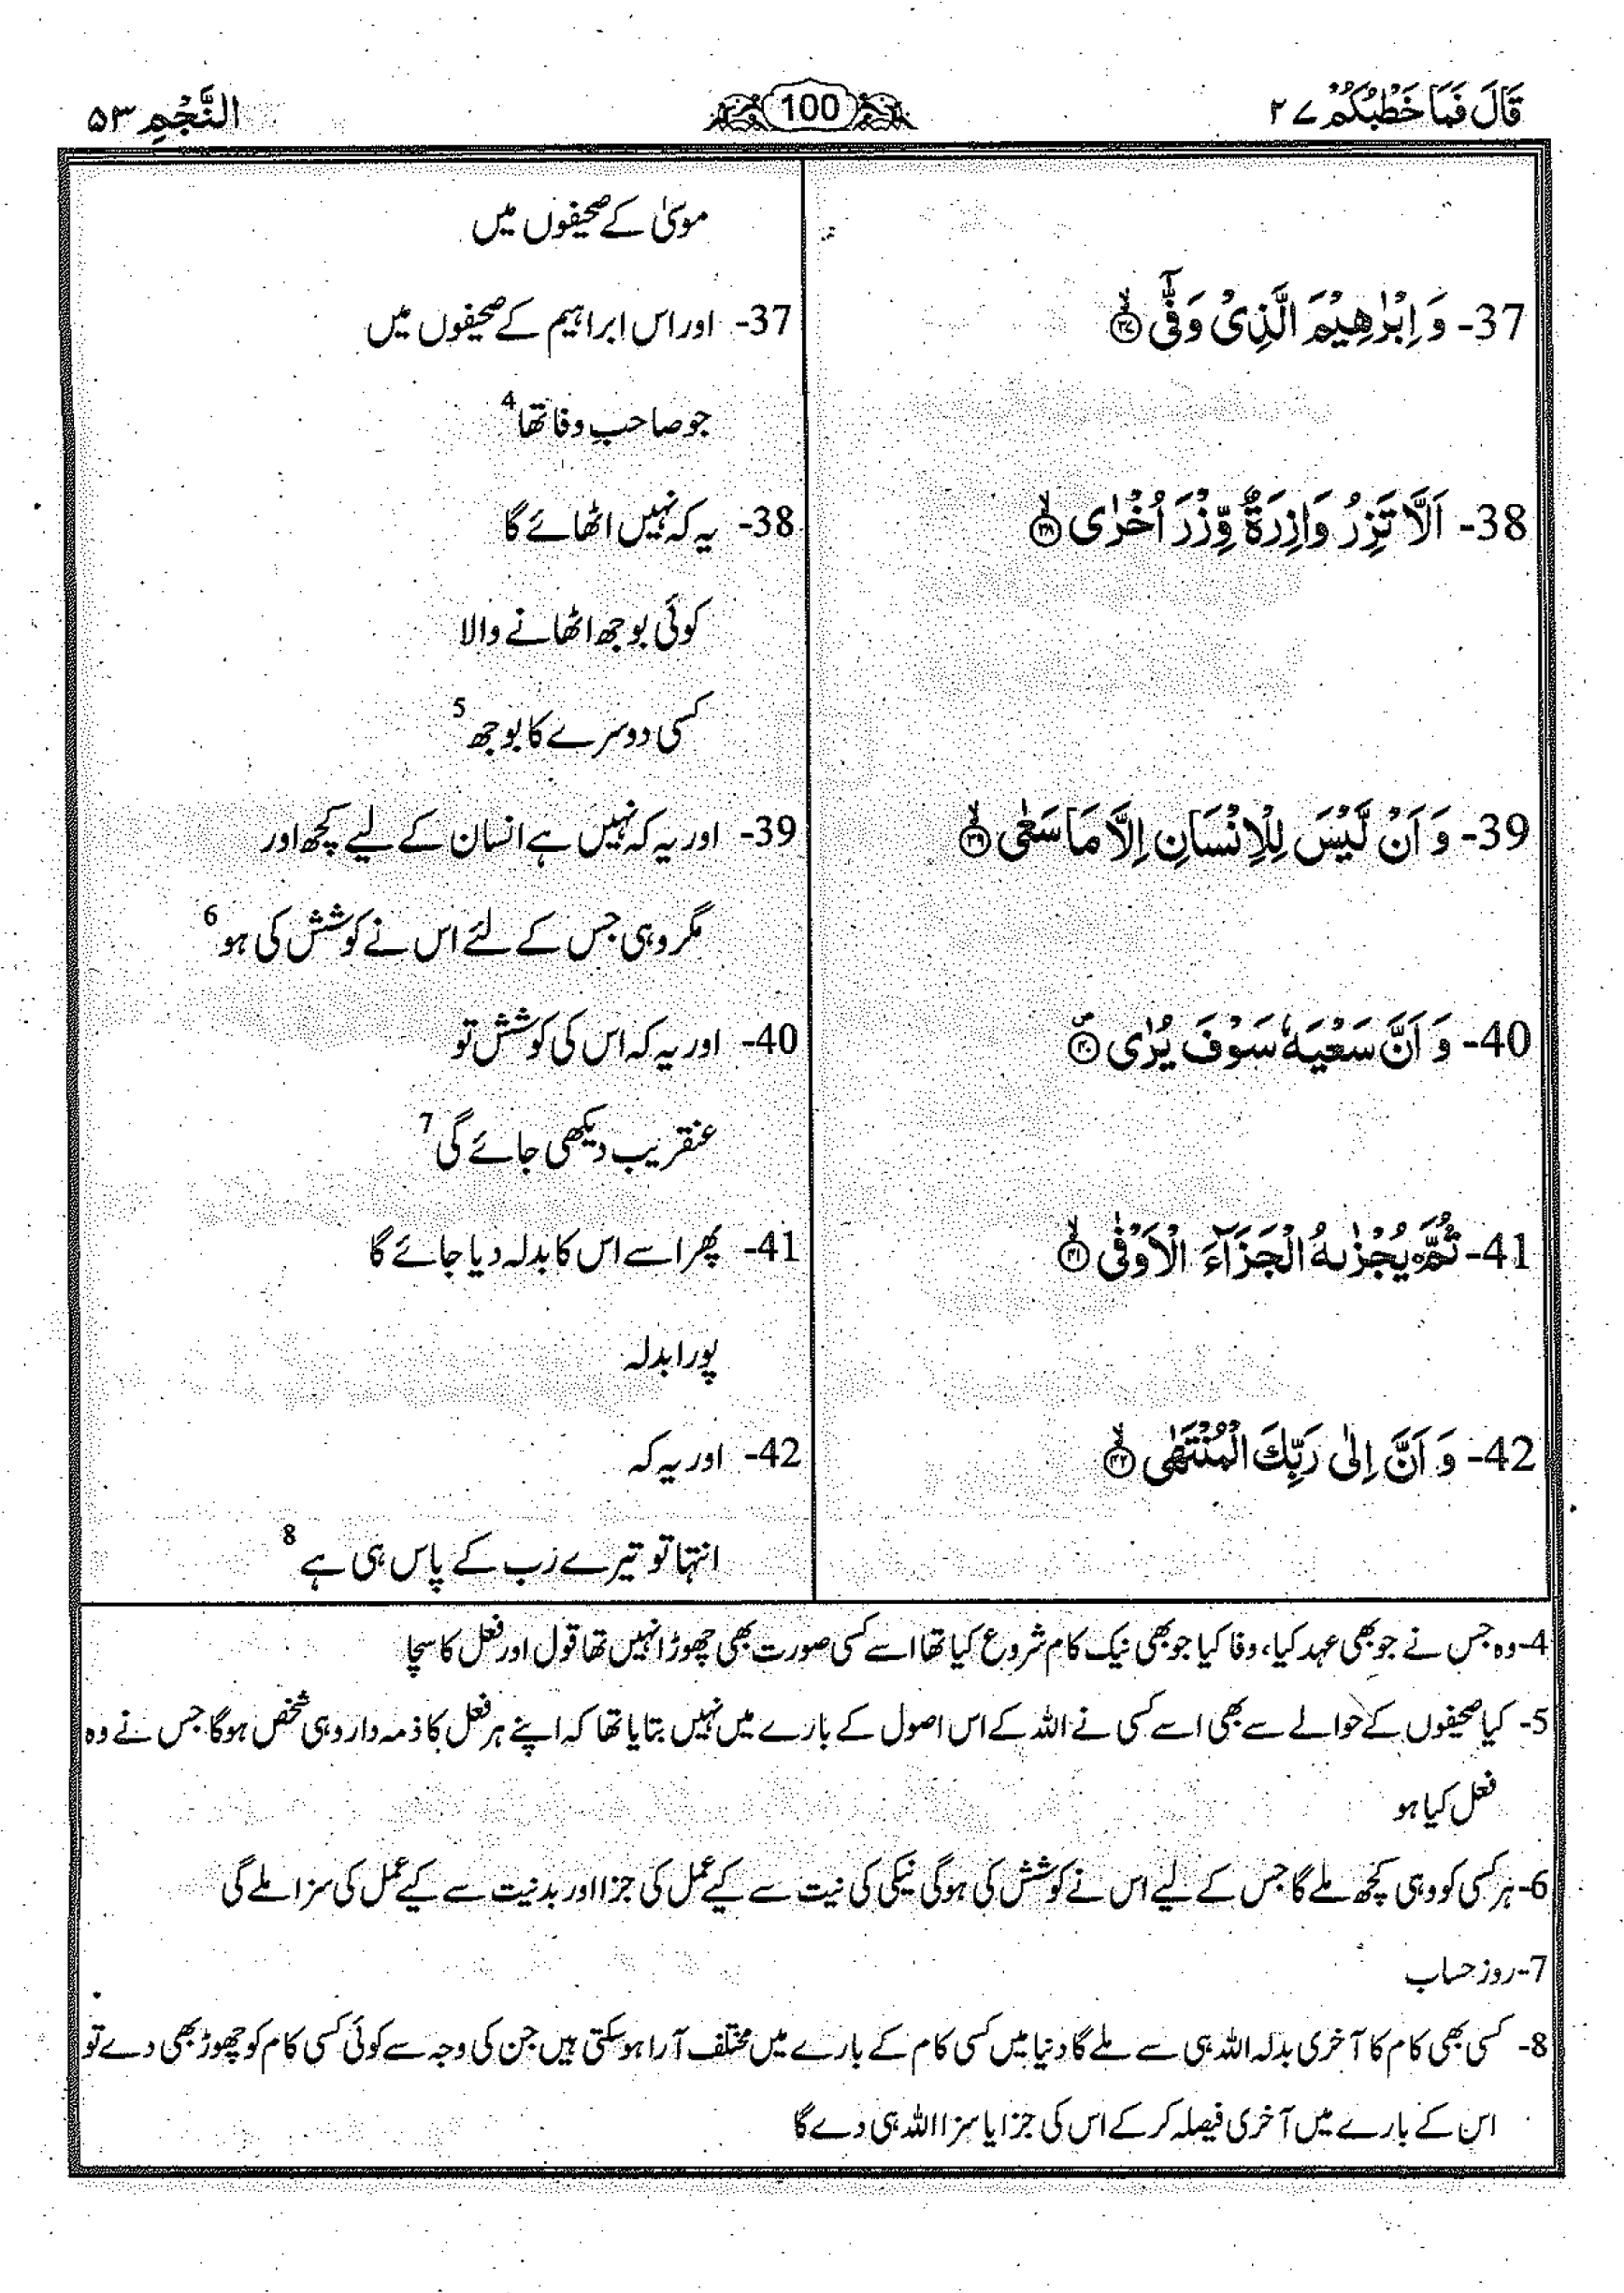 قَالَ فَمَا خَطْبُكُمْ ۲۷
100
النَّجْمِ ۵۳
موسیٰ کے صحیفوں میں
37- وَ اِبْرٰهِیْمَ الَّذِیْ وَفّٰۤی ۙ﴿۳۷﴾
37- اور اس ابراہیم کے صحیفوں میں
جو صاحبِ وفا تھا 4
38- اَلَّا تَزِرُ وَازِرَةٌ وِّزْرَ اُخْرٰی ۙ﴿۳۸﴾
38- یہ کہ نہیں اٹھائے گا
کوئی بوجھ اٹھانے والا
کسی دوسرے کا بوجھ 5
39- وَ اَنْ لَّیْسَ لِلْاِنْسَانِ اِلَّا مَا سَعٰی ۙ﴿۳۹﴾
39- اور یہ کہ نہیں ہے انسان کے لیے کچھ اور
مگر وہی جس کے لئے اس نے کوشش کی ہو 6
40- وَ اَنَّ سَعْیَهٗ سَوْفَ یُرٰی ۪﴿۴۰﴾
40- اور یہ کہ اس کی کوشش تو
عنقریب دیکھی جائے گی 7
41- ثُمَّ یُجْزٰىهُ الْجَزَآءَ الْاَوْفٰی ۙ﴿۴۱﴾
41- پھر اسے اس کا بدلہ دیا جائے گا
پورا بدلہ
42- وَ اَنَّ اِلٰی رَبِّكَ الْمُنْتَهٰی ۙ﴿۴۲﴾
42- اور یہ کہ
انتہا تو تیرے رب کے پاس ہی ہے 8
4- وہ جس نے جو بھی عہد کیا، وفا کیا جو بھی نیک کام شروع کیا تھا اسے کسی صورت بھی چھوڑا نہیں تھا قول اور فعل کا سچا
5- کیا صحیفوں کے حوالے سے بھی اسے کسی نے اللہ کے اس اصول کے بارے میں نہیں بتایا تھا کہ اپنے ہر فعل کا ذمہ دار وہی شخص ہوگا جس نے وہ
فعل کیا ہو
6- ہر کسی کو وہی کچھ ملے گا جس کے لیے اس نے کوشش کی ہوگی نیکی کی نیت سے کیے عمل کی جزا اور بد نیت سے کیے عمل کی سزا ملے گی
7- روز حساب
8- کسی بھی کام کا آخری بدلہ اللہ ہی سے ملے گا دنیا میں کسی کام کے بارے میں مختلف آرا ہو سکتی ہیں جن کی وجہ سے کوئی کسی کام کو چھوڑ بھی دے تو
اس کے بارے میں آخری فیصلہ کر کے اس کی جزا یا سزا اللہ ہی دے گا